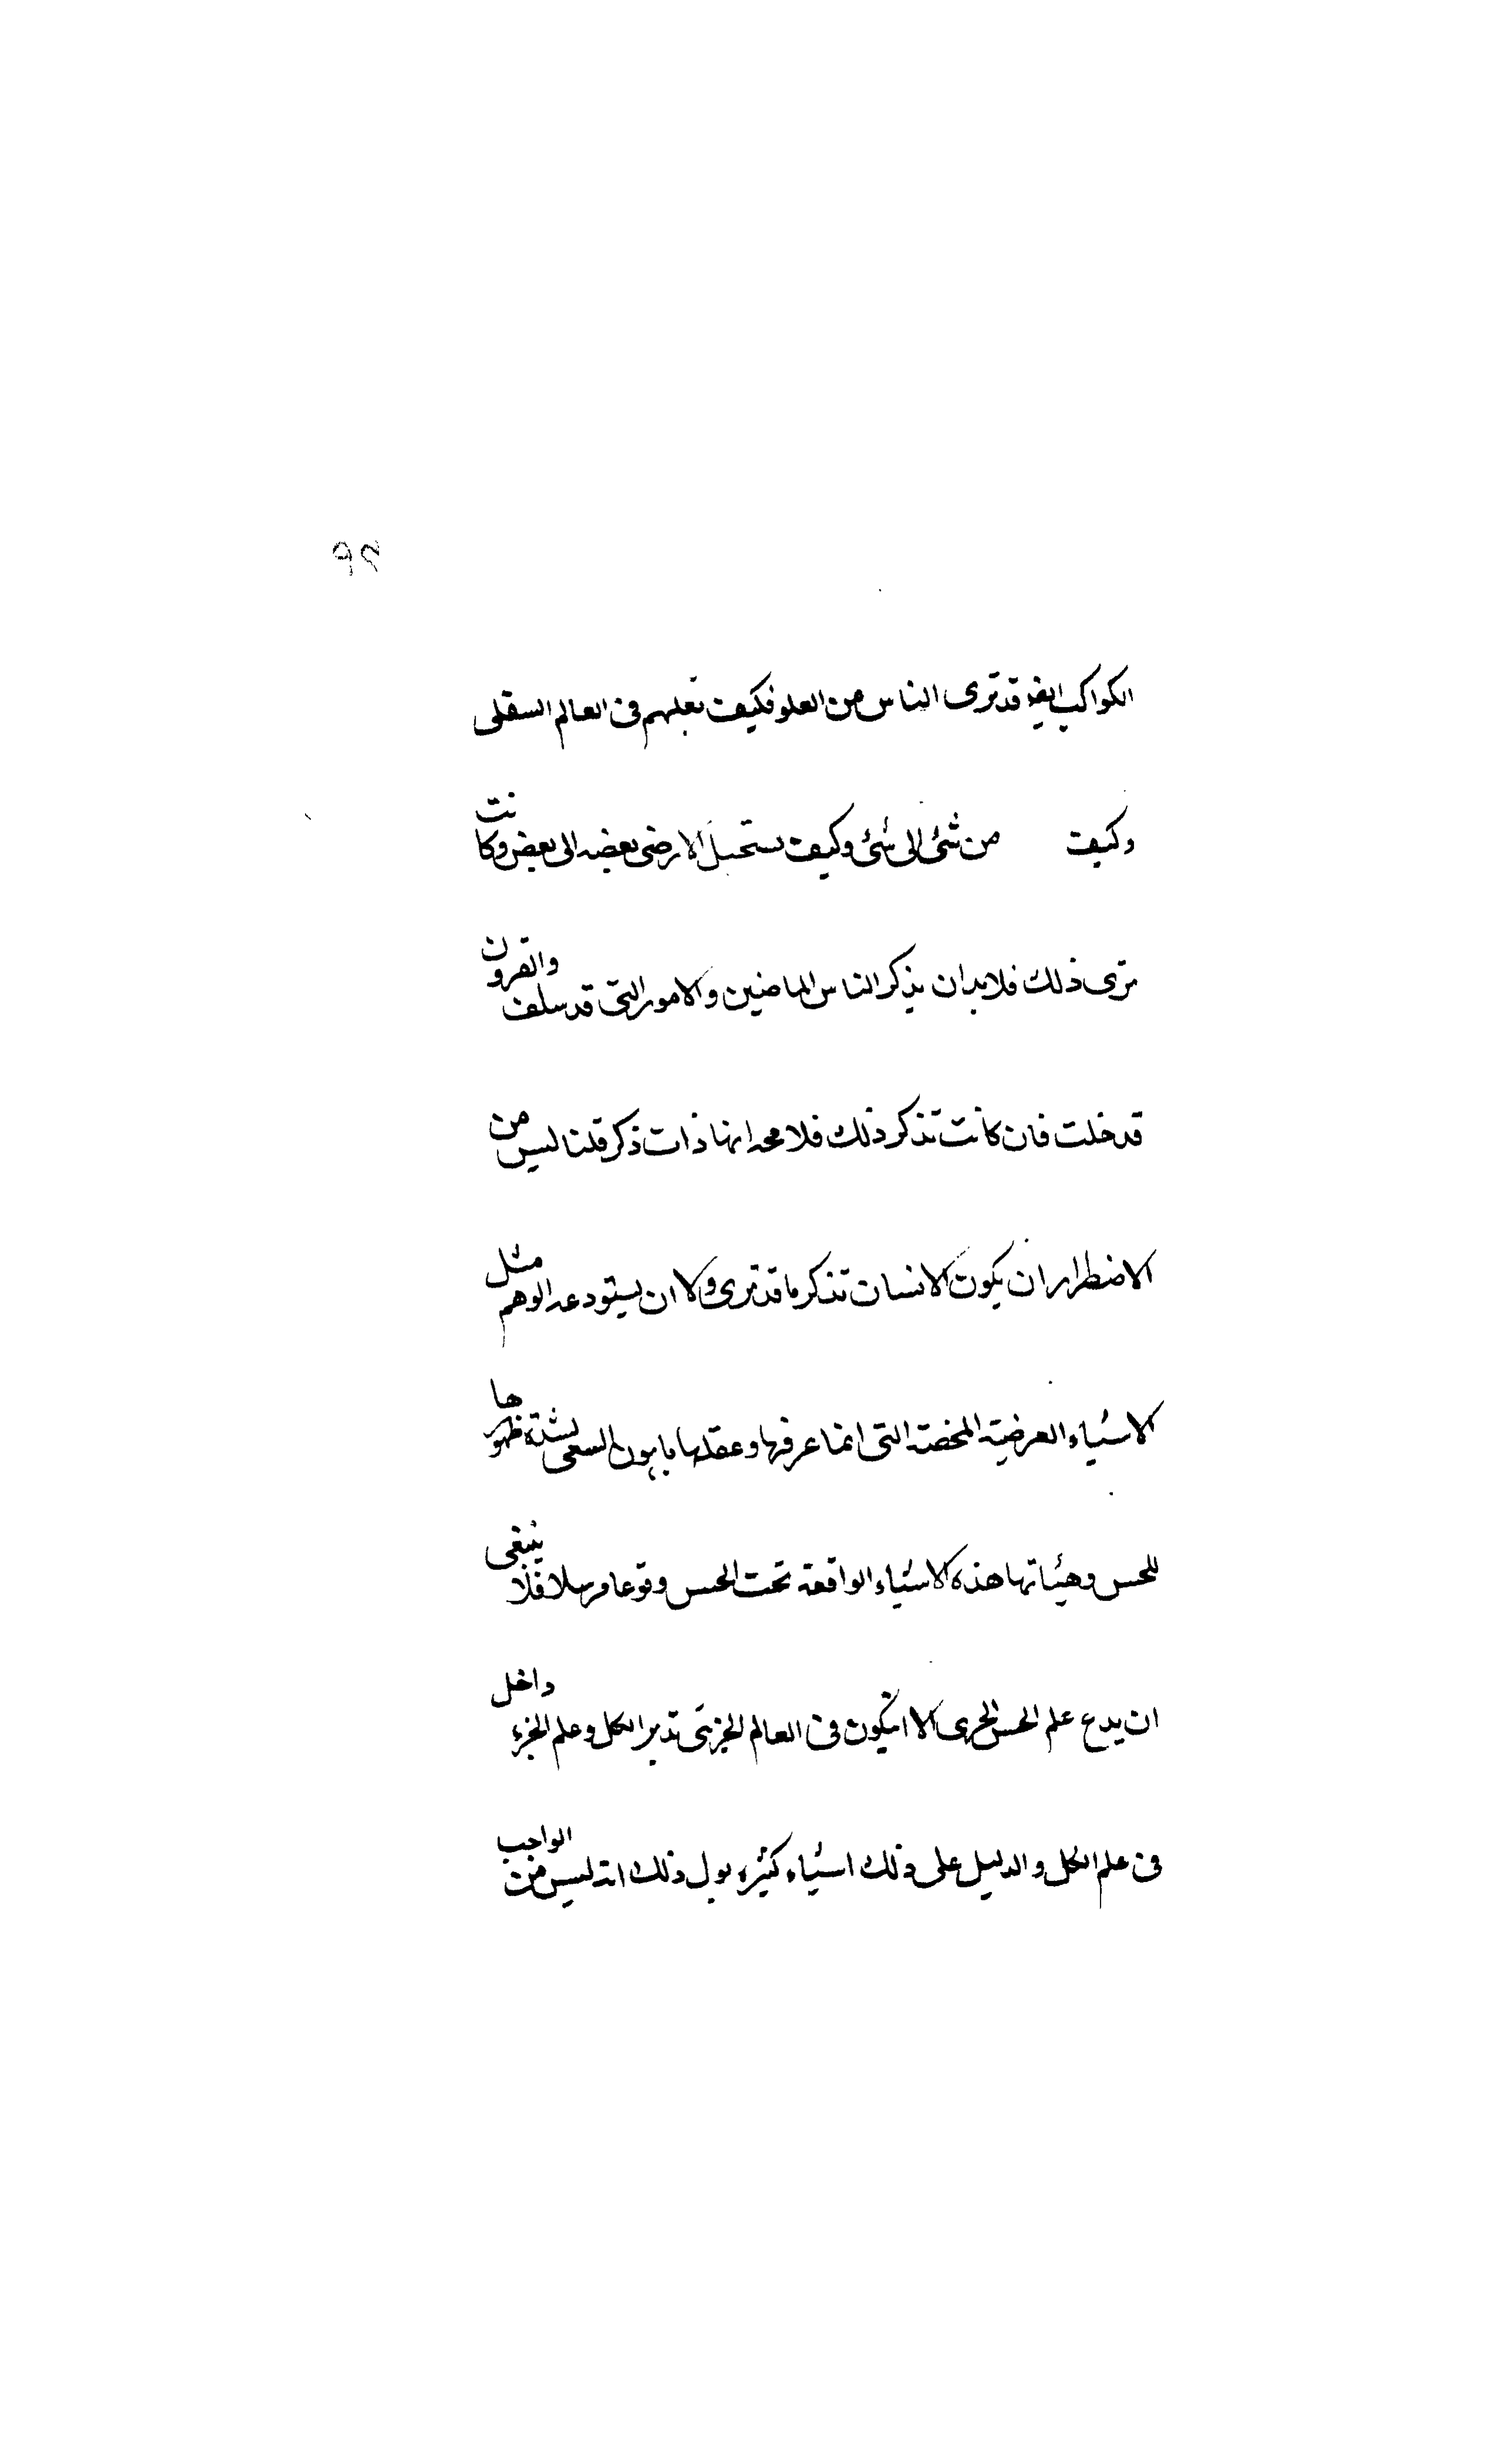 ٩٢
الكواكب ايضا قد ترى الناس من العلو فكيف تعلبهم فى العالم السفلى
وكيف من شئ الى شئ وكيف يستحيل الارضى بعضه الى بعض وكانت
ترى ذلك فلابد ان يذكر الناس الماضين والامور التى قد سلف والقرون
قد خلت فان كانت تذكر ذلك فلا محه انها ذات ذكر قلنا ليس من
الاضطرار ان يكون الانسان تذكر ما قد ترى ولا ان يستودعه الوهم مثل
الاشياء العرضية المحضة التى انما عرفها وعقلها باهون السعى لشدة ظهورها
للحس وهيئاتها هذه الاشياء الواقعة تحت الحس وقوعا مرسلا فلا ينبغى
ان يدع علم الحس الجزى الا ان يكون فى العالم الجزئى تدبير الكل وعلم الجزء داخل
فى علم الكل والدليل على ذلك اشياء كثيره اول ذلك انه ليس من الواجب